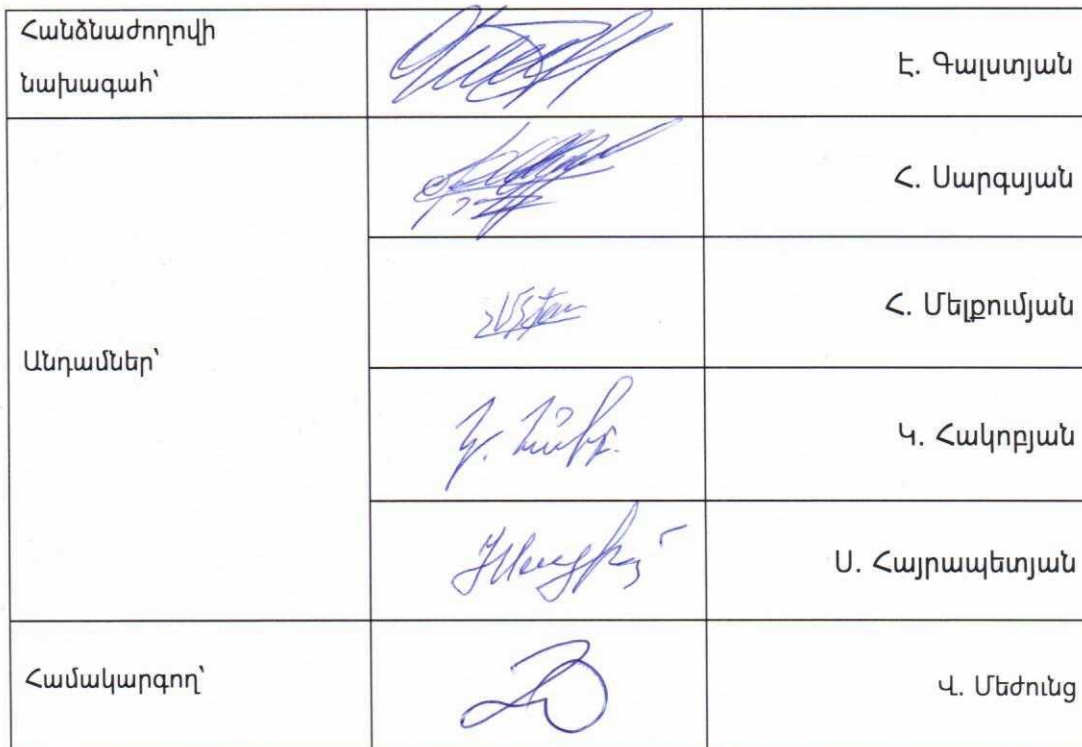 Հանձնաժողովի
նախագահ՝
Է. Գալստյան
Հ. Սարգսյան
Անդամներ՝
Հ. Մելքումյան
Կ. Հակոբյան
Ս. Հայրապետյան
Համակարգող՝
Վ. Մեժունց